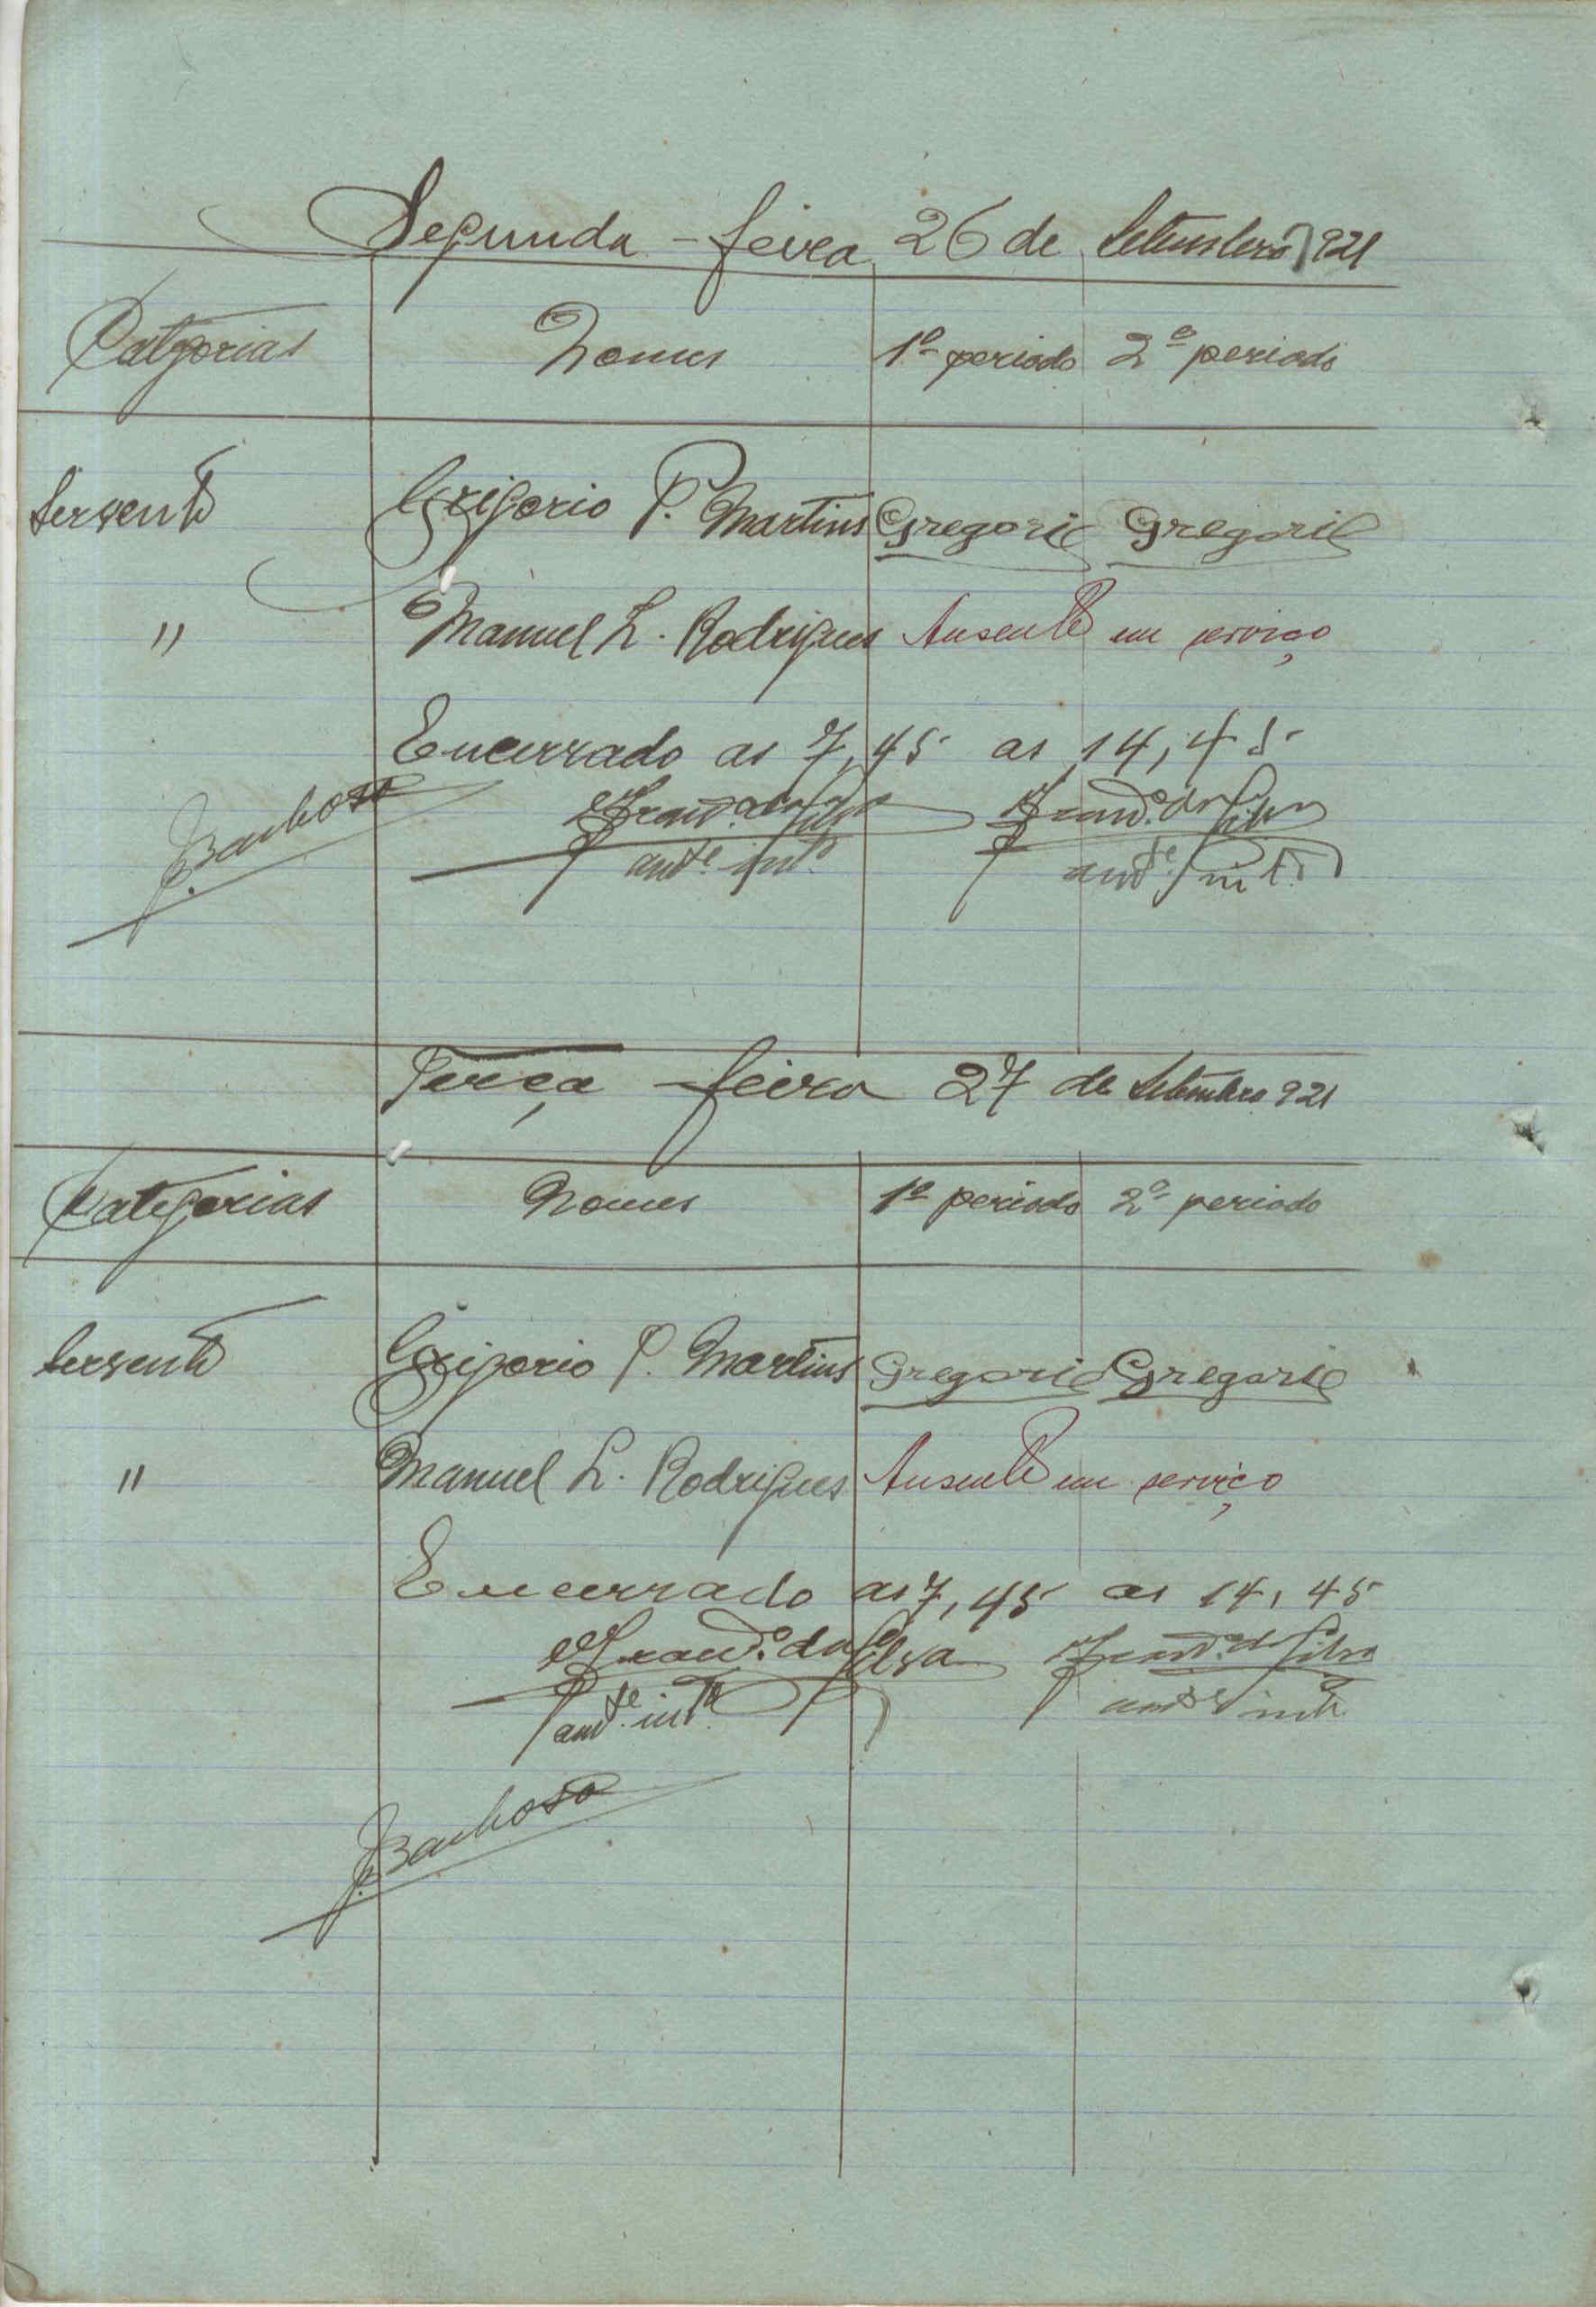 Segunda-feira 26 de Setembro 921
Categorias Nomes 1º periodo 2º periodo
Servente Grigorio P. Martins Gregorio Gregorio
" Manuel L. Rodrigues Ausente em serviço
Encerrado as 7,45 as 14,45
Franco. da Silva Franco. da Silva
J. Barbosa
Terça feira 27 de Setembro 921
Categorias Nomes 1º periodo 2º periodo
Servente Grigorio P. Martins Gregorio Gregorio
" Manuel L. Rodrigues Ausente em serviço
Encerrado as 7,45 as 14,45
Franco. da Silva Franco. da Silva
J. Barbosa